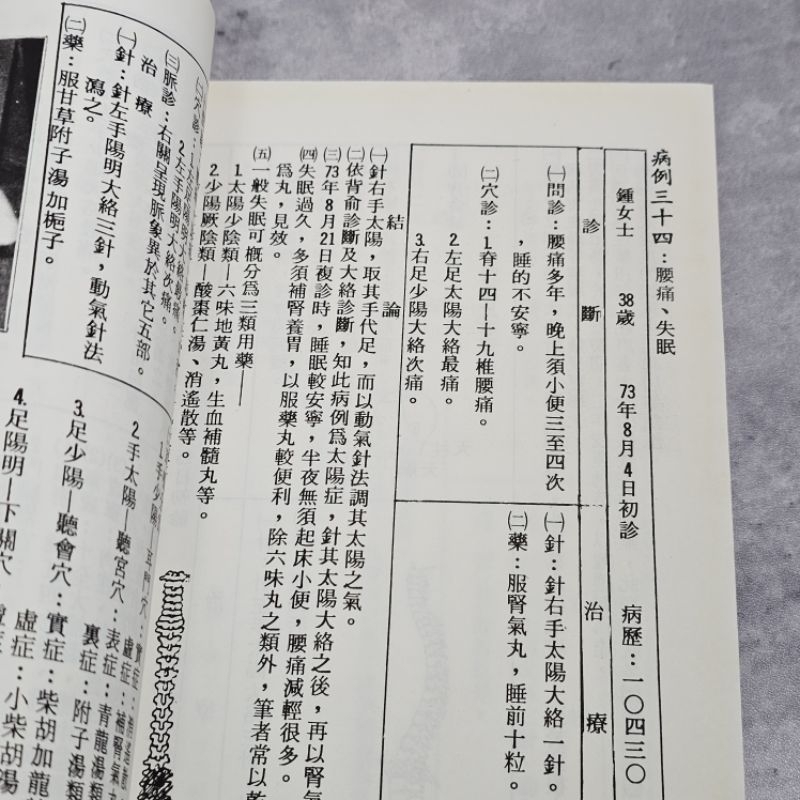 病例三十四：腰痛、失眠
鍾女士　38歲　73年8月4日初診　病歷：一〇四三〇
診斷
㈠問診：腰痛多年，晚上須小便三至四次
，睡的不安寧。
㈡穴診：1.脊十四—十九椎腰痛。
2.左足太陽大絡最痛。
3.右足少陽大絡次痛。
治療
㈠針：針右手太陽大絡一針。
㈡藥：服腎氣丸，睡前十粒。
結論
㈠針右手太陽，取其手代足，而以動氣針法調其太陽之氣。
㈡依背俞診斷及大絡診斷，知此病例爲太陽症，針其太陽大絡之後，再以腎氣
㈢73年8月21日複診時，睡眠較安寧，半夜無須起床小便，腰痛減輕很多。
㈣失眠過久，多須補腎養胃，以服藥丸較便利，除六味丸之類外，筆者常以
爲丸，見效。
㈤一般失眠可概分爲三類用藥——
1.太陽少陰類—六味地黃丸，生血補髓丸等。
2.少陽厥陰類—酸棗仁湯、消遙散等。
2.左手陽明大絡次痛。
㈢脈診：右關呈現脈象異於其它五部。
治療
㈠針：針左手陽明大絡三針，動氣針法
瀉之。
㈡藥：服甘草附子湯加梔子。
1.手少陽—耳門穴：實症：
虛症：補腎氣丸
2.手太陽—聽宮穴：表症：青龍湯類
裏症：附子湯類
3.足少陽—聽會穴：實症：柴胡加龍
虛症：小柴胡湯
4.足陽明—下關穴